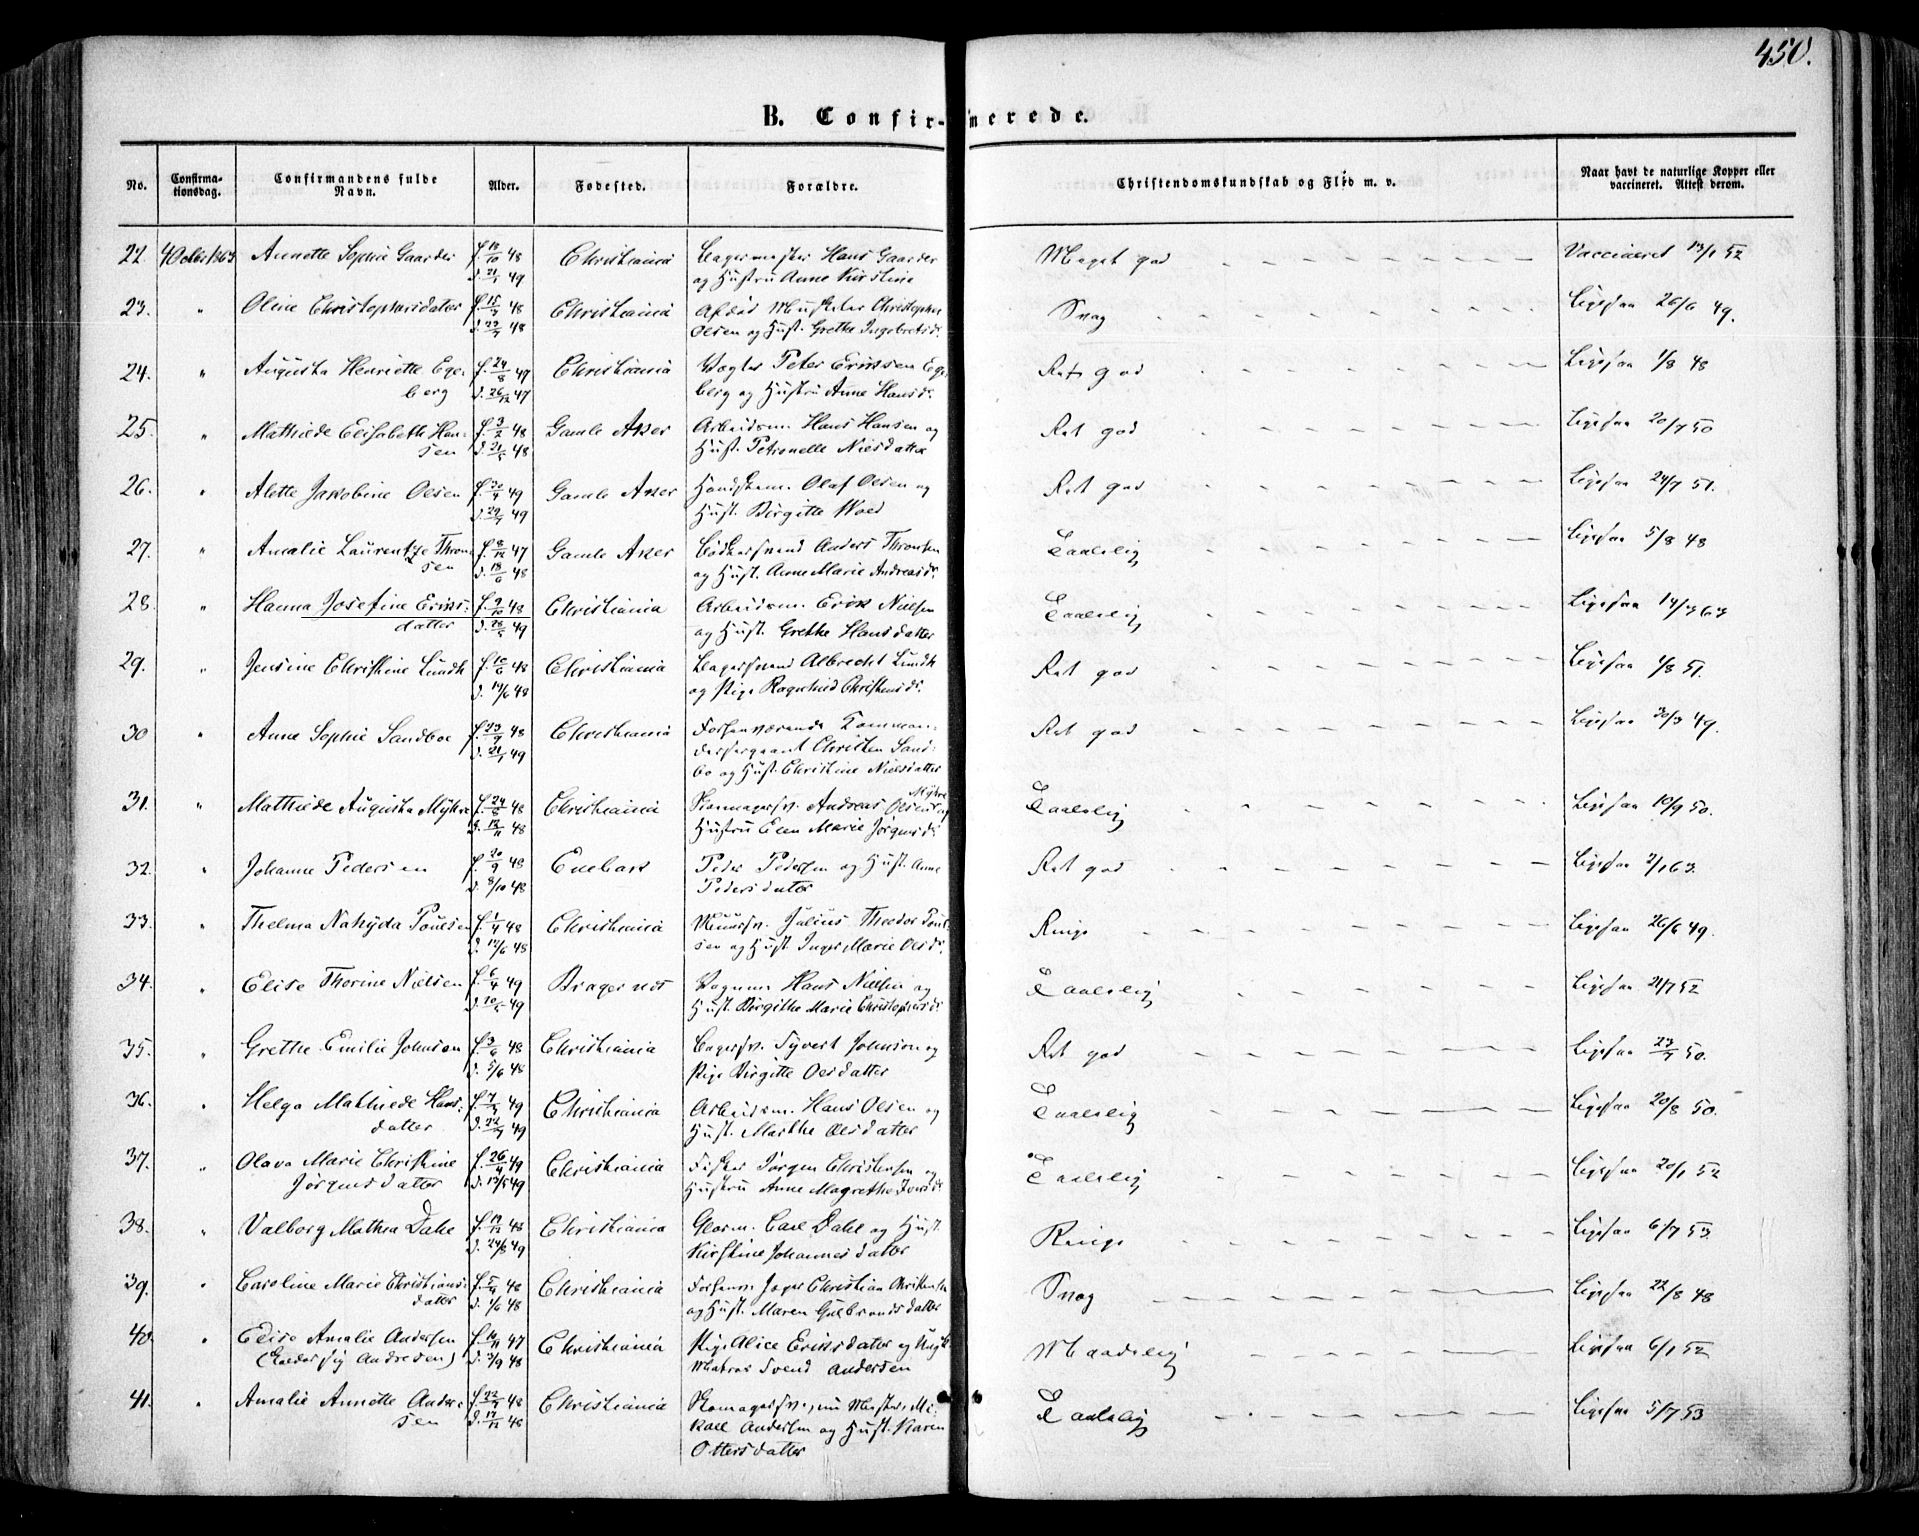 450.
B. Confirmerede.
No.
Confirmationsdag.
Confirmandens fulde Navn.
Alder.
Fødested.
Forældre.
Christendomskundskab og Flid m. v.
Naar havt de naturlige Kopper eller vaccineret. Attest derom.
22. 4 Octbr 1863 Annette Sophie Gaarder f. 13/10 48 Christiania Bagermester Hans Gaarder Meget god Vaccineret 13/1 52
d. 21/1 49 og Hustru Anne Kirstine
23. " Oline Christophersdatter f. 15/3 48 Christiania Afdød Musketer Christopher Svag Ligesaa 26/6 49.
48 Olsen og Hust. Grethe Ingebretsd.
24. " Augusta Henriette Ege- f. 24/8 47 Christiania Vægter Peter Eriksen Ege- Ret god Ligesaa 1/8 48
berg d. 26/12 47 berg og Hustru Anne Hansd.
25. " Mathilde Elisabeth Han- f. 3/2 48 Gamle Aker Arbeidsm. Hans Hansen og Ret god Ligesaa 20/7 50
sen d. 21/5 48 Hust. Petronelle Nielsdatter
26. " Alette Jakobine Olsen 49 Gamle Aker Olaf Olsen og Ret god Ligesaa 24/7 51.
49 Hust. Birgitte
27. " Amalie Laurentze Thron- f. 8/12 47 Gamle Aker Bødkersvend Anders Thronsen Taalelig Ligesaa 5/8 48
sen d. 18/6 48 og Hust. Anne Marie Andreasd.
28. " Hanna Josefine Eriks- f. 9/10 48 Christiania Arbeidsm. Erik Nielsen Taalelig Ligesaa
datter d. 28/5 49 og Hust. Grethe Hansdatter
29. " Jensine Christine Lundh f. 10/6 48 Christiania Bagersvend Albrecht Lundh Ret god Ligesaa 1/8 51.
d. 19/6 48 og Pige Ragnhild Christensd.
30 " Anne Sophie Sandboe f. 23/9 48 Christiania Forhenværende Komman- Ret god Ligesaa 30/3 49.
d. 21/1 49 dersergeant Christen Sand-
bo og Hust. Christine Nielsdatter
31. " Mathilde Augusta Myhre f. 24/8 48 Christiania Andreas Olsen Myhre og Taalelig Ligesaa 10/9 50.
d. 12/11 48 Hustru Elen Marie Jørgensd.
32. " Johanne Pedersen f. 20/9 48 Enebak Peder Pedersen og Hust. Anne Ret god Ligesaa 2/1 63.
d. 8/10 48 Pedersdatter
33. " Thelma Nahyda Poulsen f. 1/4 48 Christiania Muursv. Julius Theodor Poul- Ringe Ligesaa 26/6 49.
d. 12/6 48 sen og Hust. Inger Marie Olsd.
34. " Elise Thorine Nielsen f. 6/4 49 Bragernes Hans Nielsen og Taalelig Ligesaa 21/7 52
d. 20/5 49 Hust. Birgithe Marie Christophersd.
35. " Grethe Emilie Johnsen f. 3/4 48 Christiania Bagersv. Syvert Johnson og Ret god Ligesaa 50.
d. 5/6 48 Pige Birgitte Olsdatter
36. " Helga Mathilde Hans- 49 Christiania Arbeidsm. Hans Olsen og Taalelig Ligesaa 20/8 50.
datter 49 Hust. Marthe Olsdatter
37. " Olava Marie Christine f. 26/4 49 Christiania Fisker Jørgen Christensen og Taalelig Ligesaa 20/1 52
Jørgensdatter d. 17/5 49 Hustru Anne Magrethe Iversd.
38. " Valborg Mathea Dahl f. 19/12 48 Christiania Glarm. Carl Dahl og Hust. Ringe Ligesaa 6/7 53
d. 24/6 49 Kirstine Johannesdatter
39. " Caroline Marie Christians- f. 5/4 48 Christiania Forhenv. Jæger Christian Christensen Svag Ligesaa 22/8 48
datter d. 1/6 48 og Hust. Maren Gulbrandsdatter
40. " Elise Amalie Andersen f. 19/11 47 Christiania Pige Alice Eriksdatter og Ungk. Maadelig Ligesaa 6/1 52
(kalder sig Andresen) d. 3/9 48 Matros Svend Andersen
41. " Amalie Annette Ander- 48 Christiania nu Mester, Mi- Taalelig Ligesaa 5/7 53
sen 48 kael Andersen og Hust. Karen
Ottersdatter